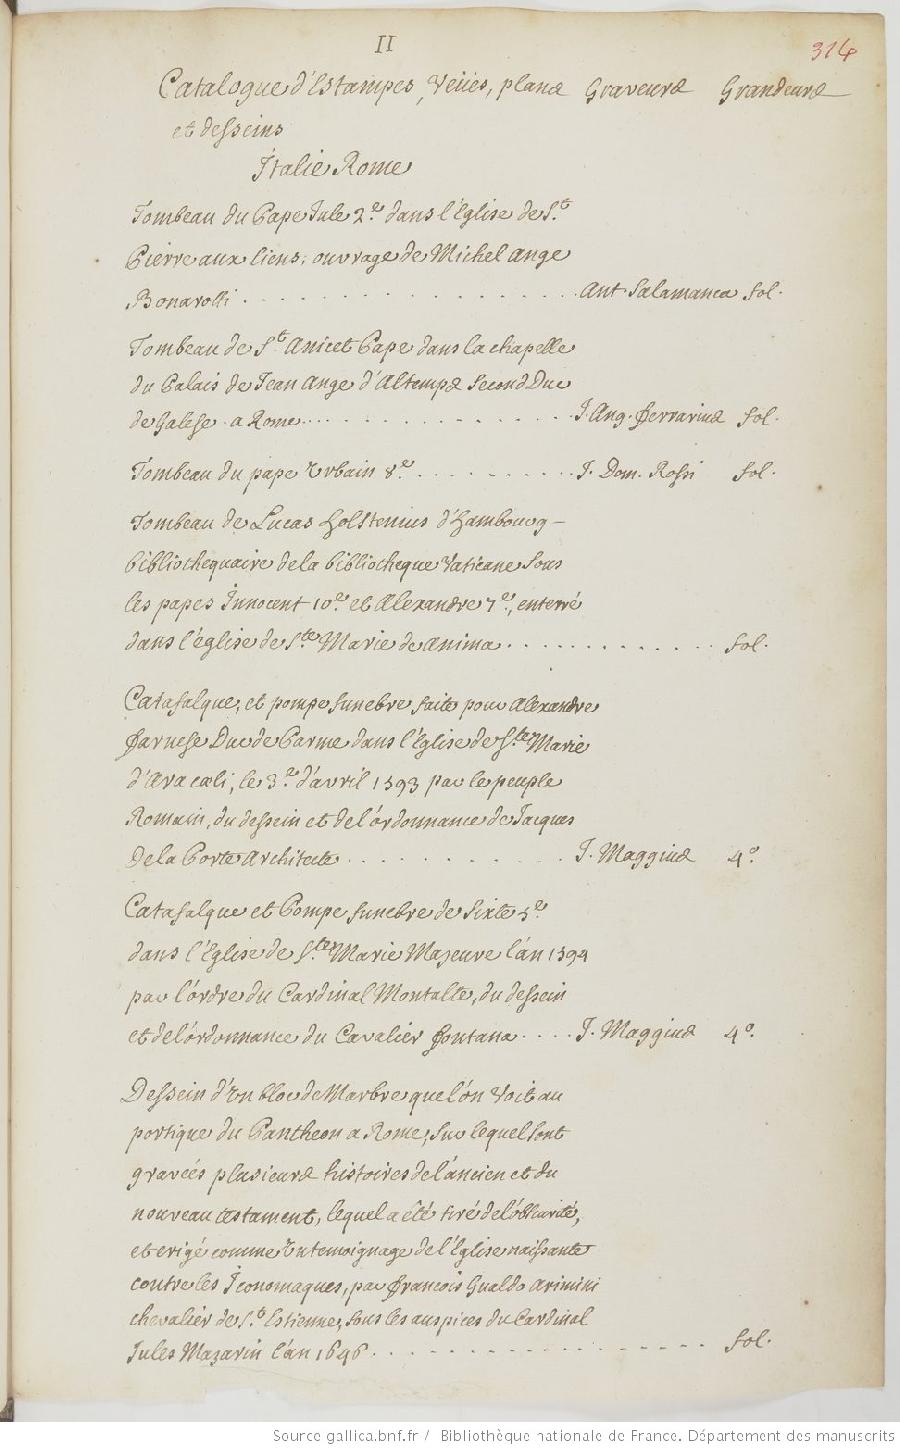 II
314
Catalogue d'Estampes, Veües, plans Graveurs Grandeurs
et desseins
Italie Rome
Tombeau du Pape Jule 2.e dans l'Eglise de S.t
Pierre aux liens, ouvrage de Michel Ange
Bonarolli . . . . . . . . . . . . . . . . . Ant Salamanca fol.
Tombeau de S.t Anicet Pape dans la chapelle
du Palais de Jean Ange d'Altemps Second Duc
de Galese a Rome . . . . . . . . . . . . . . J. Ang. Ferrarius fol.
Tombeau du pape Urbain 8.e . . . . . . . . . J. Dom. Rossi fol.
Tombeau de Lucas Holstenius d'Hambourg -
bibliothequaire de la bibliotheque Vaticane sous
les papes Innocent 10.e et Alexandre 7.e, enterré
dans l'église de S.te Marie de anima . . . . . . . . . . . fol.
Catafalque, et pompe funebre faite pour Alexandre
Farnese Duc de Parme dans l'Eglise de S.te Marie
d'Aracæli, le 3.e d'avril 1593 par le peuple
Romain, du dessein et de l'ordonnance de Jacques
De la Porte Architecte . . . . . . . . . . . J. Maggius 4.o
Catafalque et Pompe funebre de Sixte 5.e
dans l'Eglise de S.te Marie Majeure l'an 1594
par l'ordre du Cardinal Montalte, du dessein
et de l'ordonnance du Cavalier Fontana . . . . J. Maggius 4.o
Dessein d'Un bloc de Marbre que l'on Voit au
portique du Pantheon a Rome, sur lequel sont
gravées plusieurs histoires de l'ancien et du
nouveau testament, lequel a êté tiré de l'obscurité,
et erigé comme Un temoignage de l'Eglise naissante
contre les Iconomaques, par François Gualdo Arimini
chevalier de S.t Estienne, sous les auspices du Cardinal
Jules Mazarin l'an 1646 . . . . . . . . . . . . . . . . fol.
Source gallica.bnf.fr / Bibliothèque nationale de France. Département des manuscrits